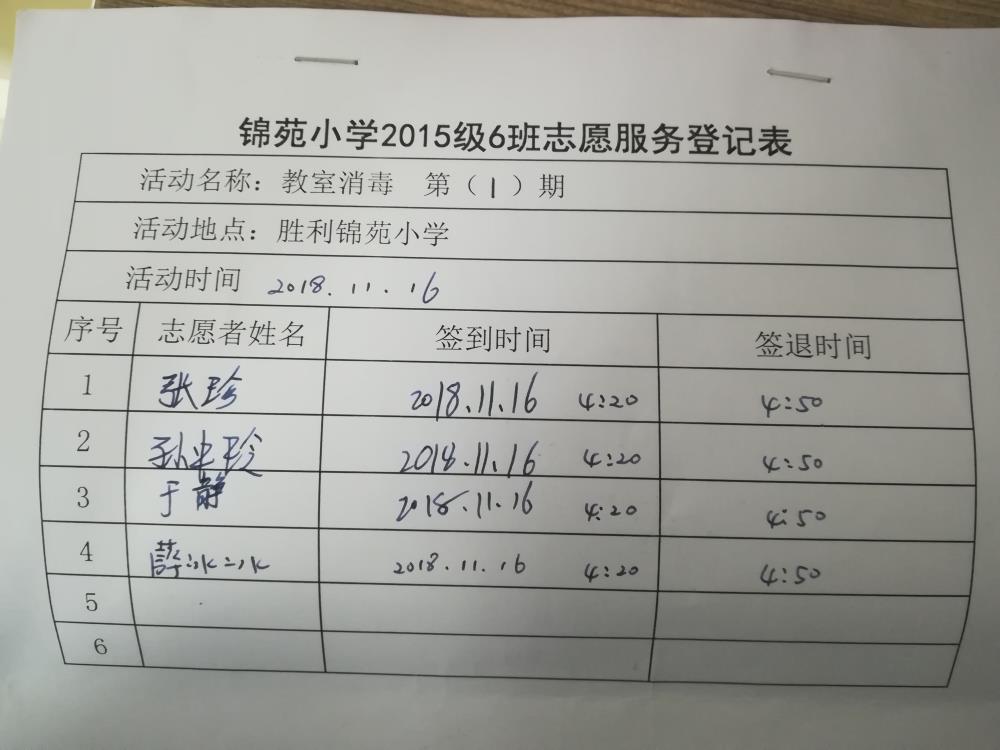 锦苑小学2015级6班志愿服务登记表
活动名称：教室消毒 第（1）期
活动地点：胜利锦苑小学
活动时间 2018.11.16
序号 志愿者姓名 签到时间 签退时间
1 张珍 2018.11.16 4:20 4:50
2 孙 珍 2018.11.16 4:20 4:50
3 于静 2018.11.16 4:20 4:50
4 薛冰冰 2018.11.16 4:20 4:50
5
6